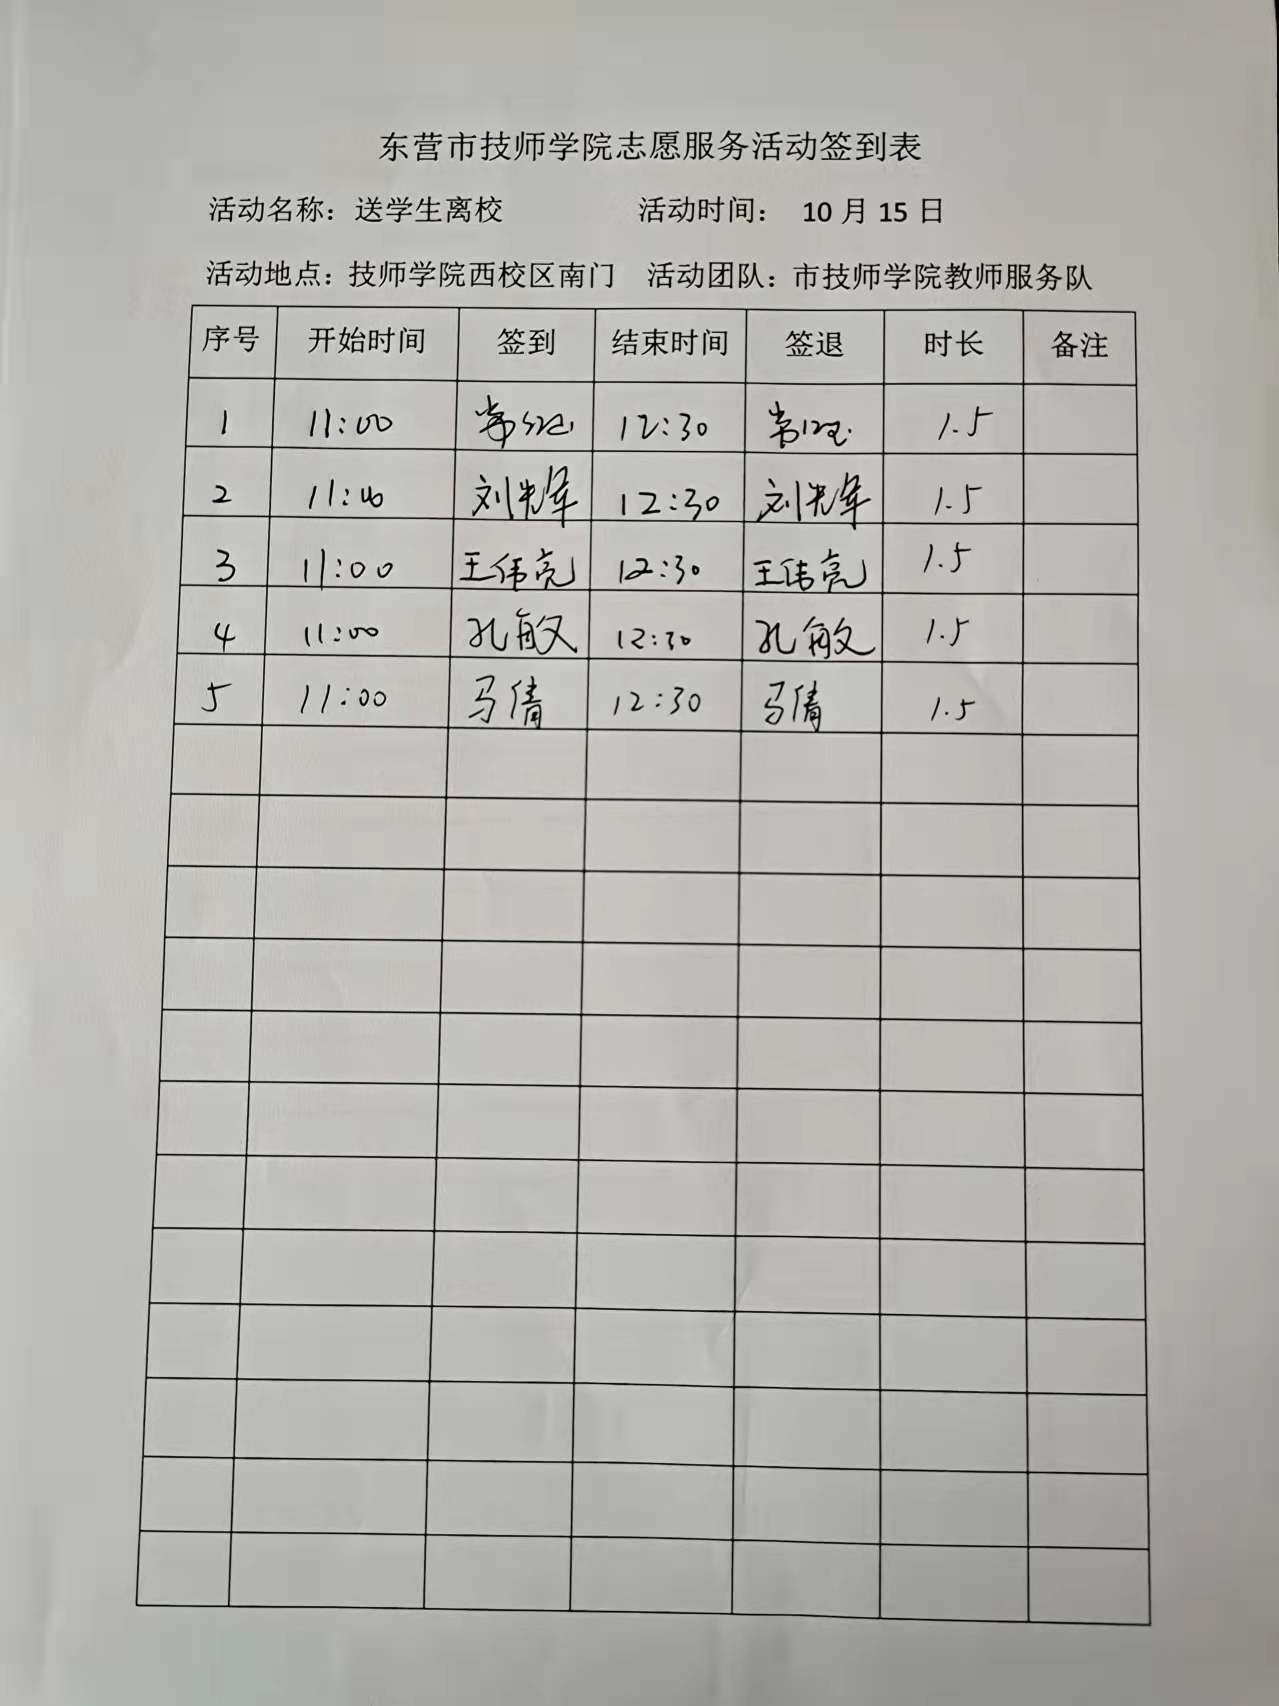 东营市技师学院志愿服务活动签到表
活动名称：送学生离校 活动时间： 10 月 15 日
活动地点：技师学院西校区南门 活动团队：市技师学院教师服务队
序号 开始时间 签到 结束时间 签退 时长 备注
1 11:00 常 12:30 常 1.5
2 11:00 刘光军 12:30 刘光军 1.5
3 11:00 王伟亮 12:30 王伟亮 1.5
4 11:00 孔敏 12:30 孔敏 1.5
5 11:00 马倩 12:30 马倩 1.5